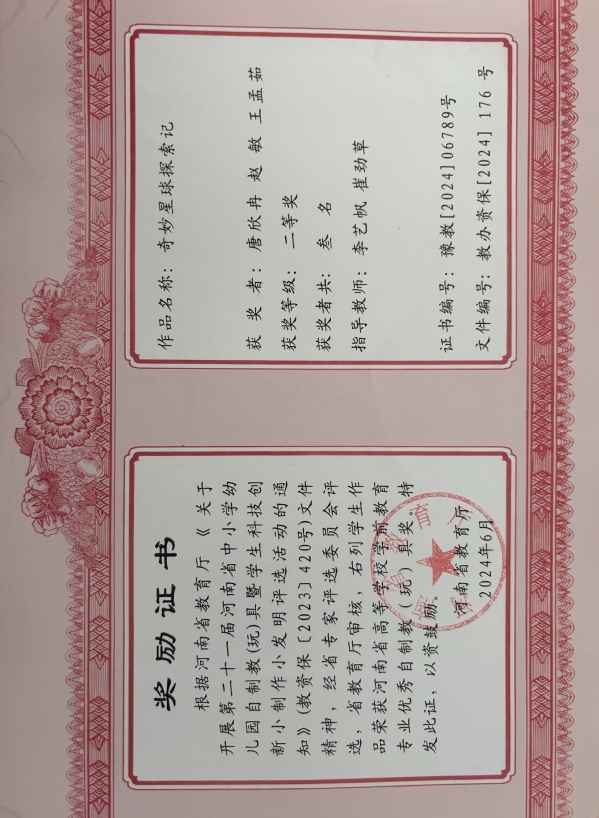 奖励证书
根据河南省教育厅《关于
开展第二十一届河南省中小学幼
儿园自制教(玩)具暨学生科技创
新小制作小发明评选活动的通
知》(教资保〔2023〕420号)文件
精神，经省专家评选委员会评
选，省教育厅审核，右列学生作
品荣获河南省高等学校学前教育
专业优秀自制教(玩)具奖。特
发此证，以资鼓励。
河南省教育厅
2024年6月
作品名称：奇妙星球探索记
获奖者：唐欣冉 赵敏 王孟茹
获奖等级：二等奖
获奖者共：叁名
指导教师：李艺帆 崔劲草
证书编号：豫教[2024]06789号
文件编号：教办资保[2024]176号